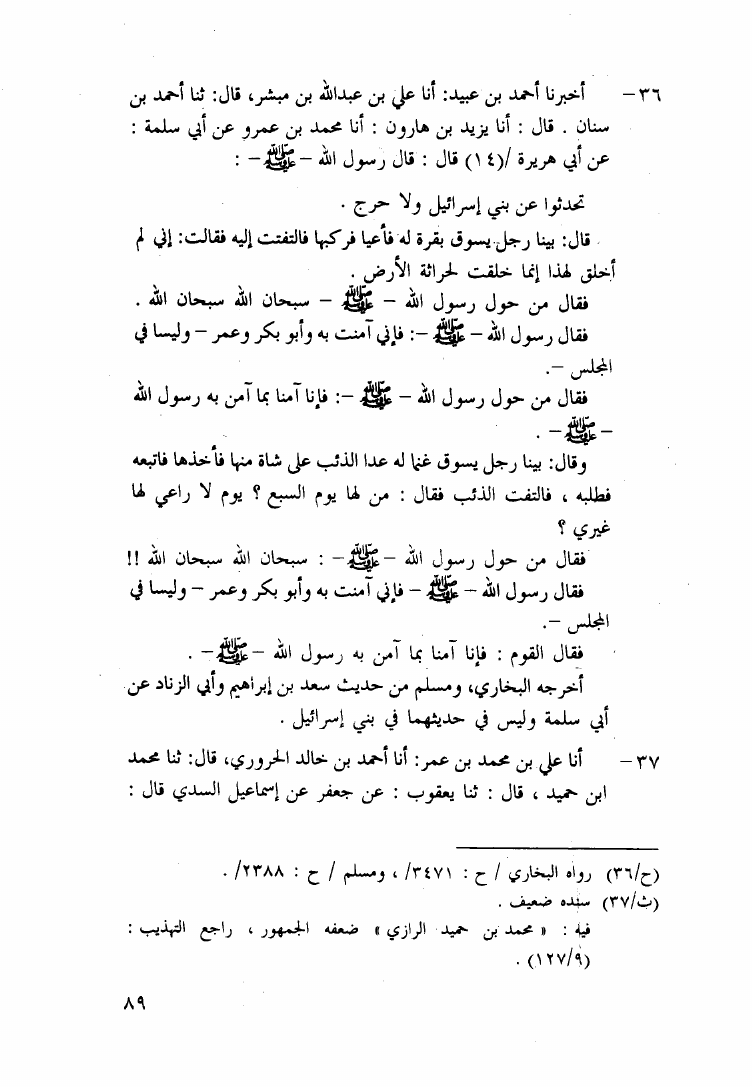 ٣٦- أخبرنا أحمد بن عبيد: أنا علي بن عبدالله بن مبشر، قال: ثنا أحمد بن
سنان . قال : أنا يزيد بن هارون : أنا محمد بن عمرو عن أبي سلمة :
عن أبي هريرة /(١٤) قال : قال رسول الله -ﷺ- :
تحدثوا عن بني إسرائيل ولا حرج .
قال: بينا رجل يسوق بقرة له فأعيا فركبها فالتفتت إليه فقالت: إني لم
أخلق لهذا إنما خلقت لحراثة الأرض .
فقال من حول رسول الله - ﷺ - سبحان الله سبحان الله .
فقال رسول الله - ﷺ -: فإني آمنت به وأبو بكر وعمر - وليسا في
المجلس -.
فقال من حول رسول الله - ﷺ -: فإنا آمنا بما آمن به رسول الله
- ﷺ- .
وقال: بينا رجل يسوق غنما له عدا الذئب على شاة منها فأخذها فاتبعه
فطلبه ، فالتفت الذئب فقال : من لها يوم السبع ؟ يوم لا راعي لها
غيري ؟
فقال من حول رسول الله -ﷺ- : سبحان الله سبحان الله !!
فقال رسول الله - ﷺ - فإني آمنت به وأبو بكر وعمر - وليسا في
المجلس -.
فقال القوم : فإنا آمنا بما آمن به رسول الله -ﷺ- .
أخرجه البخاري، ومسلم من حديث سعد بن إبراهيم وأبي الزناد عن
أبي سلمة وليس في حديثهما في بني إسرائيل .
٣٧- أنا علي بن محمد بن عمر: أنا أحمد بن خالد الحروري، قال: ثنا محمد
ابن حميد ، قال : ثنا يعقوب : عن جعفر عن إسماعيل السدي قال :
(ح/٣٦) رواه البخاري / ح : ٣٤٧١/ ، ومسلم / ح : ٢٣٨٨/ .
(ث/٣٧) سنده ضعيف .
فيه : « محمد بن حميد الرازي » ضعفه الجمهور ، راجع التهذيب :
(١٢٧/٩) .
٨٩